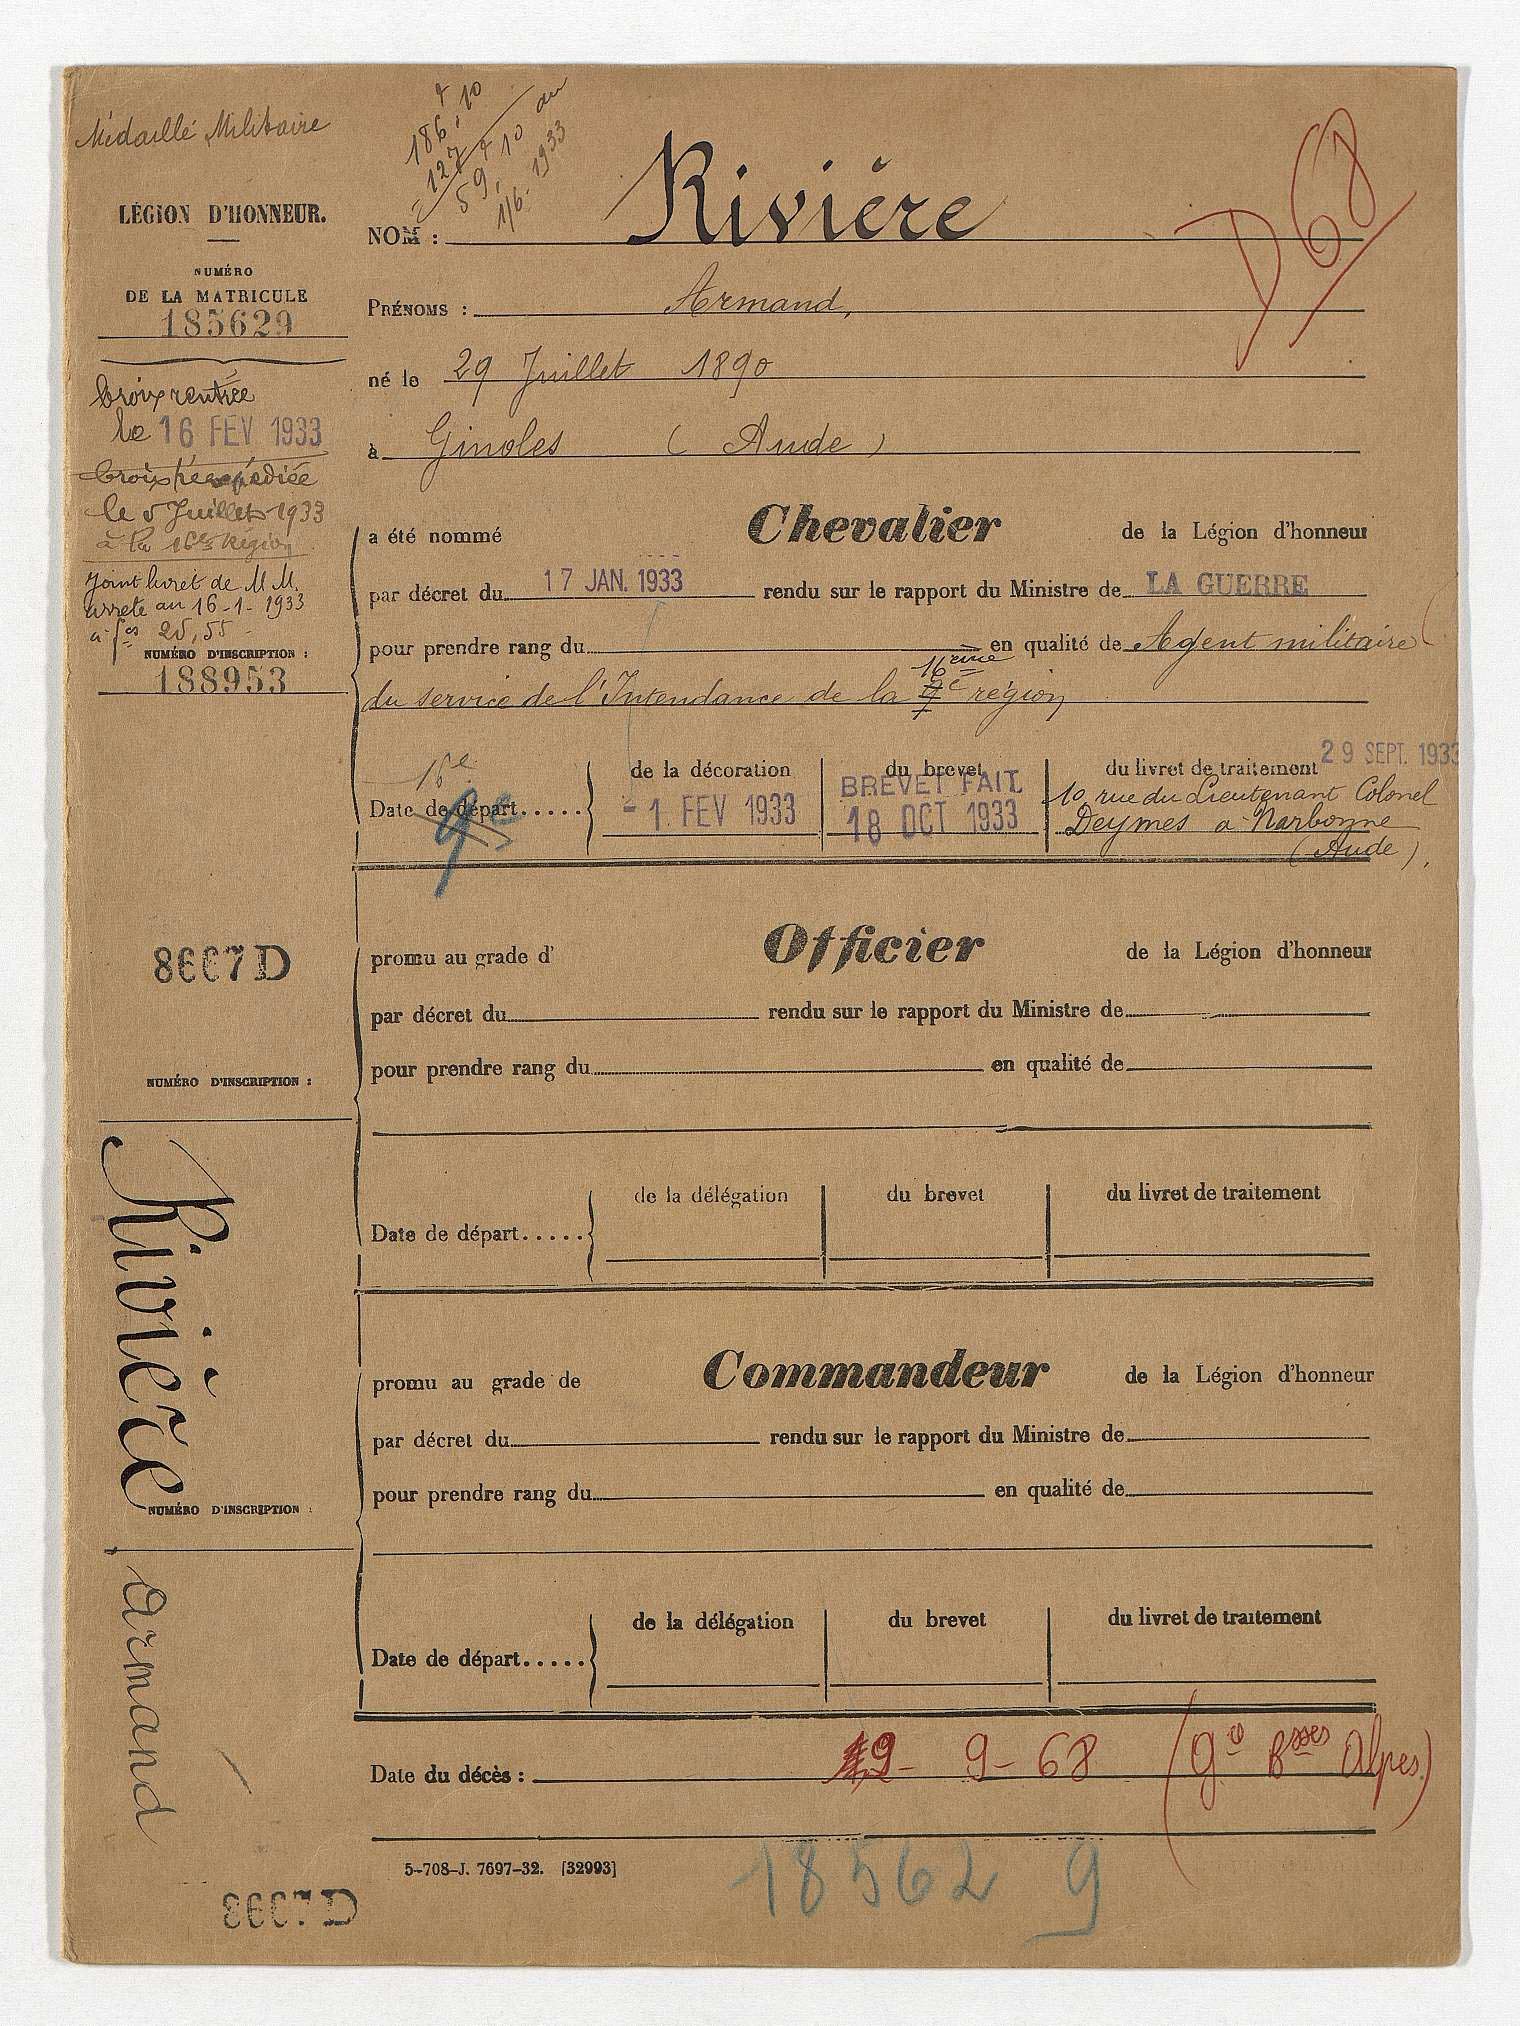 Médaillé Militaire
186,10
127
59,10 au
1/6-1933
LÉGION D'HONNEUR.
NUMÉRO
DE LA MATRICULE
185629
Croix rentrée
le 16 FEV 1933
Croix réexpédiée
le 5 Juillet 1933
à la 16e Région
Joint livret de M M.
arrêté au 16-1-1933
à fcs 25,55
NUMÉRO D'INSCRIPTION :
188953
8667 D
NUMÉRO D'INSCRIPTION :
Rivière
NUMÉRO D'INSCRIPTION :
Armand
NOM : Rivière
D 68
PRÉNOMS : Armand,
né le 29 Juillet 1890
à Ginoles (Aude)
a été nommé Chevalier de la Légion d'honneur
par décret du 17 JAN. 1933 rendu sur le rapport du Ministre de LA GUERRE
pour prendre rang du en qualité de Agent militaire
16ème
du service de l'Intendance de la 9e région
16e
9e
de la décoration du brevet du livret de traitement 29 SEPT. 1933
BREVET FAIT
Date de départ..... - 1 FEV 1933 18 OCT 1933 10 rue du Lieutenant Colonel
Deymes à Narbonne
(Aude).
promu au grade d' Officier de la Légion d'honneur
par décret du rendu sur le rapport du Ministre de
pour prendre rang du en qualité de
de la délégation du brevet du livret de traitement
Date de départ.....
promu au grade de Commandeur de la Légion d'honneur
par décret du rendu sur le rapport du Ministre de
pour prendre rang du en qualité de
de la délégation du brevet du livret de traitement
Date de départ.....
Date du décès : 19-9-68 (Gie Bsses Alpes)
5-708-J. 7697-32. [32993]
185629
8667 D